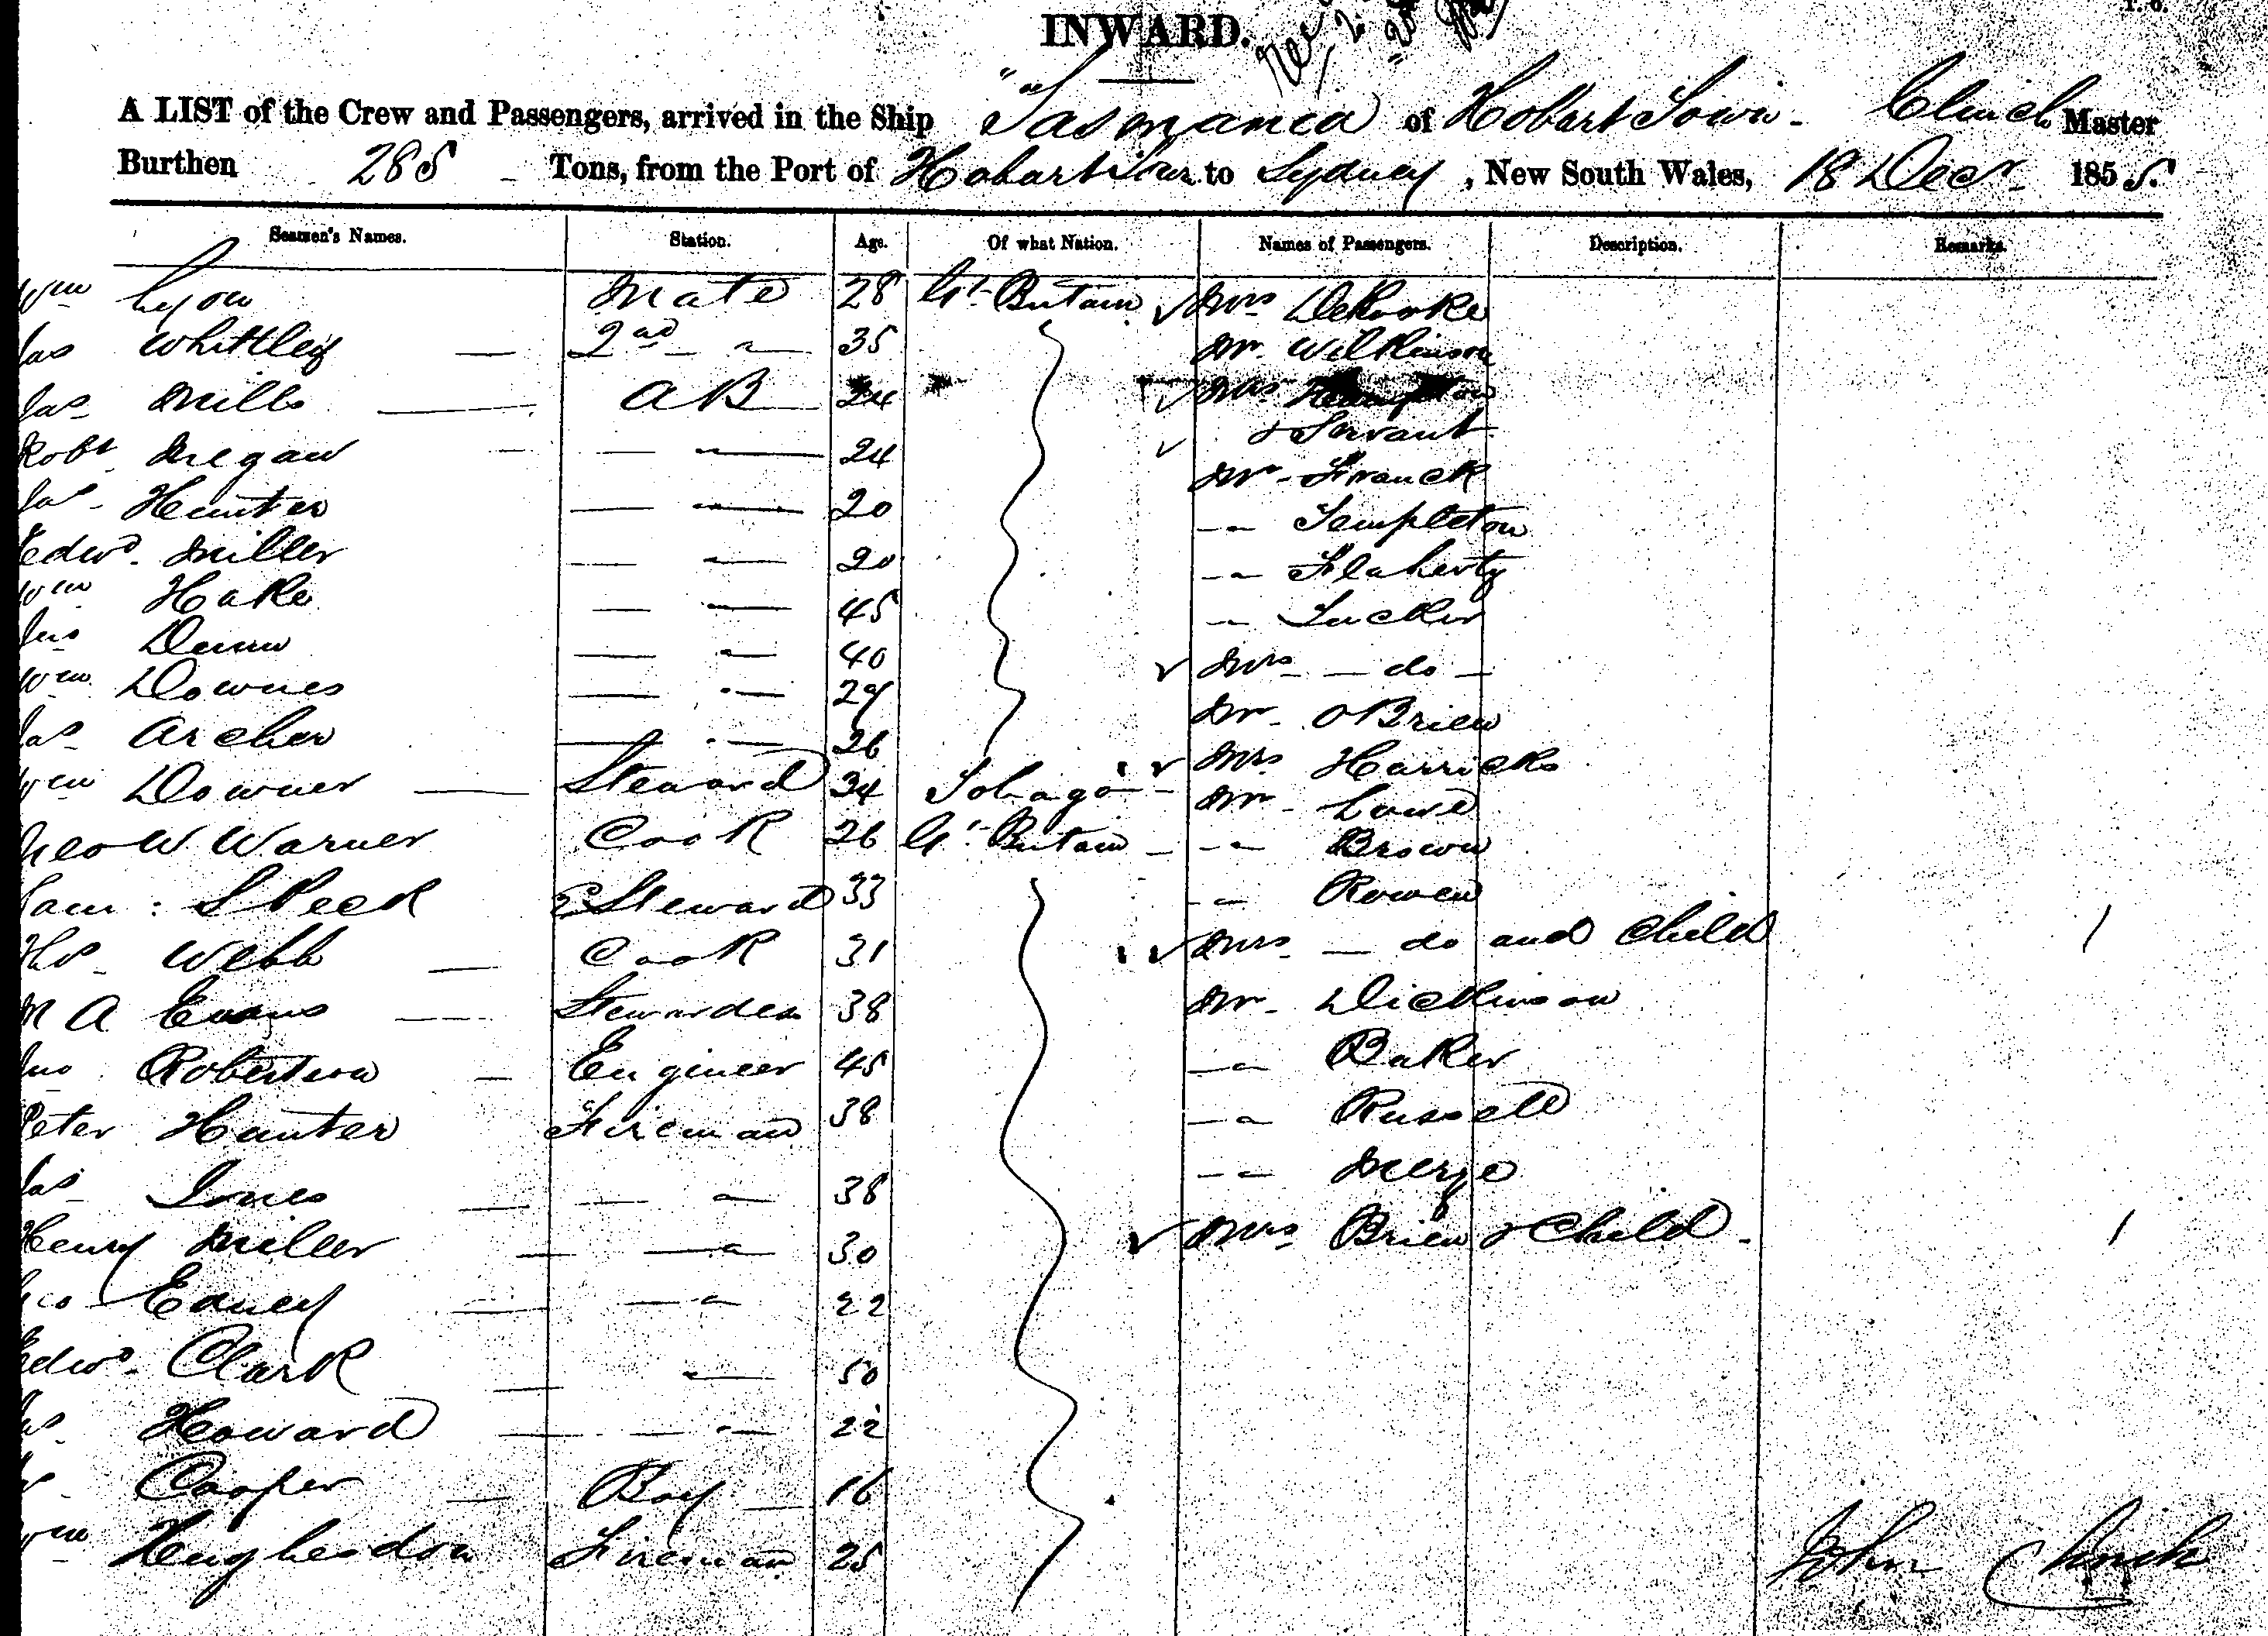 INWARD.
A LIST of the Crew and Passengers, arrived in the Ship "Tasmania" of Hobart Town - Clinch Master
Burthen 285 Tons, from the Port of Hobart Town to Sydney, New South Wales, 18 Decr 1855.
Seamen's Names. Station. Age. Of what Nation. Names of Passengers. Description. Remarks.
Wm Lyon Mate 28 Gt. Britain ✓ Mrs DeRooke
Jas Whittley — 2nd — " — 35 Mr. Wilkinson
Jas Mills — AB 24 ✓ Mrs Hampton
✓ & Servant
Robt Megaw — " — 24 Mr - Franck
Jas - Hunter — " — 20 — " Templeton
Edwd. Miller — " — 20 — " Flaherty
Wm Hake — " — 45 — " Tucker
Jno Dunn — " — 40 ✓ Mrs — do —
Wm Downes — " — 29 Mr - OBrien
Jas Archer — " — 26 ✓ Mrs Harricks
Wm Downer — Steward 34 Tobago - Mr - Lowe
Geo W Warner Cook 26 Gt. Britain — — " Brown
Sam : S Peek Steward 33 — " Rowen
Ths - Webb — Cook 31 ✓ Mrs — do and Child /
M A Evans — Stewardess 38 Mr - Dickinson
Jno Robertson — Engineer 45 — " Baker
Peter Hunter Fireman 38 — " Russell
Jas Innes — " — 38 — "
Henry Miller — " — 30 ✓ Mrs Brien & Child - /
Geo - Edney — " — 22
Edwd - Clark — " — 50
Howard — " — 22
Cooper — Boy — 16
Wm Hughesdon Fireman 25
John Clinch